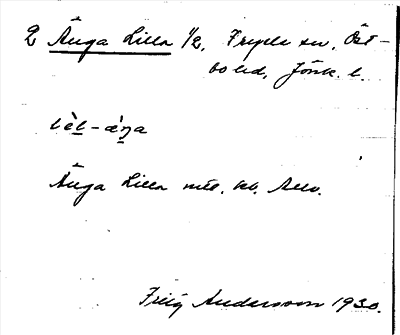 2 Änga Lilla 1/2, Fryele sn. Öst-
bo hd, Jönk. l.
lèl-æŋa
Änga Lilla mtl. kb. Allm.
Frits Andersson 1930.